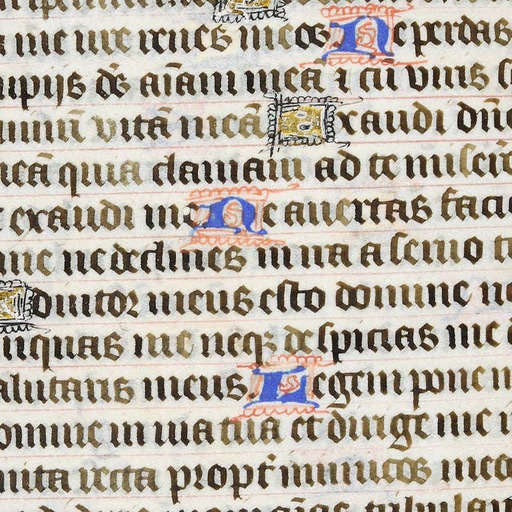 me ure renes meos Ne perdas
impijs d̄s aīam meā ⁊ cū viris
vitā meā Exaudi dn̄e
meā qua clamaui ad te
exaudi me Ne auertas faciē
me ne declines in ira a seruo
Adiutor meus esto domine ne
inquas me neqꝫ despicias me
salutaris meus Legem pone m
domine in uia tua et dirige me
mita recta propt̄ inimicos meos